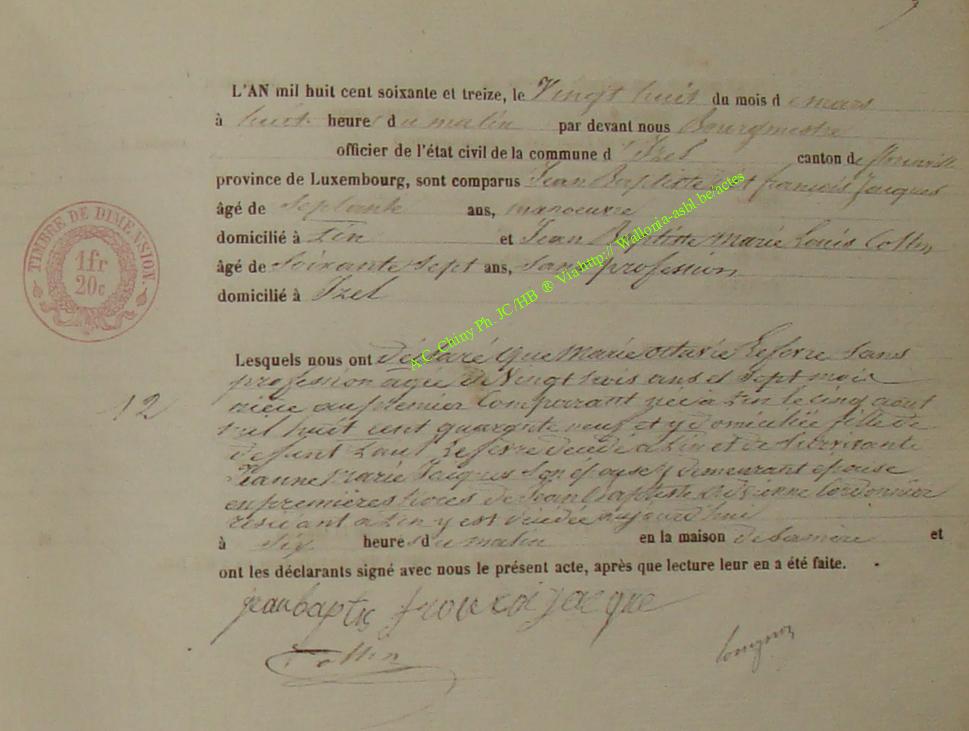 L'AN mil huit cent soixante et treize, le Vingt huit du mois de mars
à huit heures du matin par devant nous Bourgmestre
officier de l'état civil de la commune d'Izel canton de florenville
province de Luxembourg, sont comparus Jean Baptiste françois Jacques
âgé de Septante ans, manoeuvre
domicilié à tin et Jean Baptiste Marie Louis Collin
âgé de Soixante Sept ans, Sans profession
domicilié à Izel
TIMBRE DE DIMENSION.
1fr
20c
A.C. Chiny Ph. JC/HB ® Via:http:// Wallonia-asbl.be/actes
Lesquels nous ont déclaré que Marie octavie Lefevre Sans
profession agée de Vingt trois ans et Sept mois
12
nièce au premier Comparant née à tin le cinq aout
mil huit cent quarante neuf et y domiciliée fille de
defunt Paul Lefevre décédé à tin et de Survivante
Jeanne Marie Jacques Son épouse y demeurant epouse
en premières noces de Jean Baptiste Cordonnier
residant à tin y est décédée aujourd'hui
à Six heures du matin en la maison de Sa mère et
ont les déclarants signé avec nous le présent acte, après que lecture leur en a été faite.
jean baptis jacque
Collin